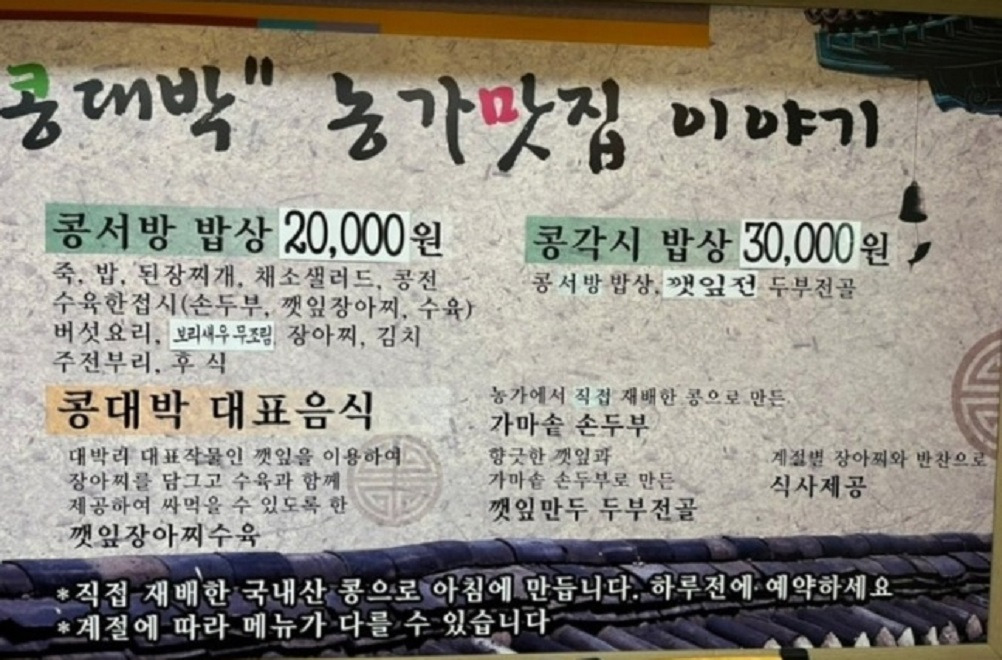 콩대박" 농가맛집 이야기
콩서방 밥상 20,000원
죽, 밥, 된장찌개, 채소샐러드, 콩전
수육한접시(손두부, 깻잎장아찌, 수육)
버섯요리, 보리새우무조림 장아찌, 김치
주전부리, 후 식
콩각시 밥상 30,000원
콩서방밥상, 깻잎전 두부전골
콩대박 대표음식
대박리 대표작물인 깻잎을 이용하여
장아찌를 담그고 수육과 함께
제공하여 싸먹을 수 있도록 한
깻잎장아찌수육
농가에서 직접 재배한 콩으로 만든
가마솥 손두부
향긋한 깻잎과
가마솥 손두부로 만든
깻잎만두 두부전골
계절별 장아찌와 반찬으로
식사제공
*직접 재배한 국내산 콩으로 아침에 만듭니다. 하루전에 예약하세요
*계절에 따라 메뉴가 다를 수 있습니다